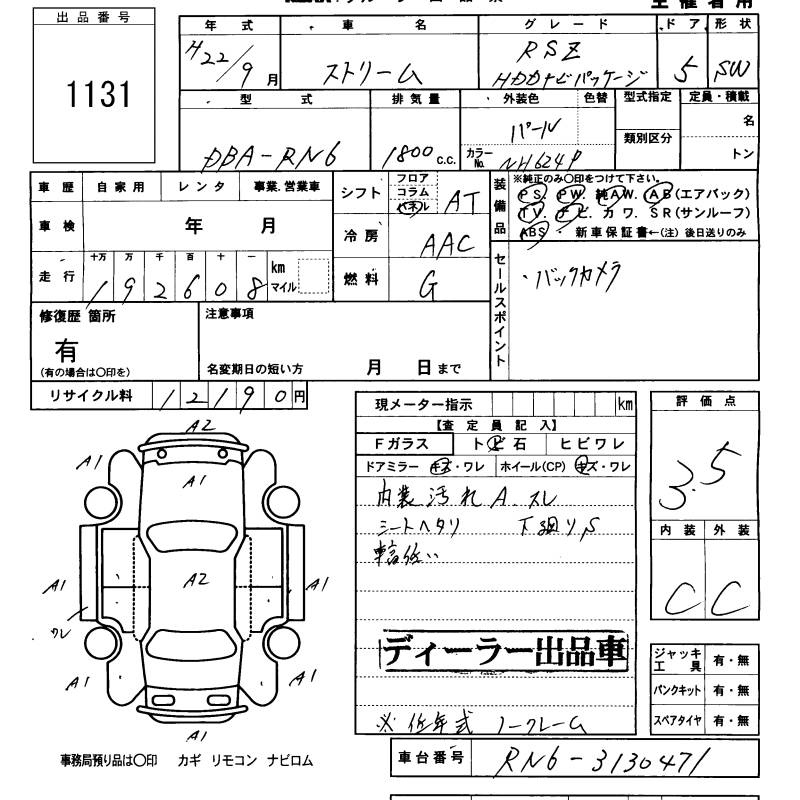 出品番号
1131
年式 車名 グレード ドア 形状
H22/9月 ストリーム RSZ HDDナビパッケージ 5 SW
型式 排気量 外装色 色替 型式指定 定員・積載
DBA-RN6 1800 c.c. パール 類別区分 名
カラーNo. NH624P トン
車歴 自家用 レンタ 事業.営業車
車検 年 月
走行 十万 万 千 百 十 一 km マイル
192608
シフト フロア コラム パネル AT
冷房 AAC
燃料 G
装備品 ※純正のみ〇印をつけて下さい。
PS. PW. 純AW. AB(エアバック)
TV. ナビ. カワ. SR(サンルーフ)
ABS ・ 新車保証書←(注) 後日送りのみ
セールスポイント
・バックカメラ
修復歴 箇所
有
(有の場合は〇印を)
注意事項
名変期日の短い方 月 日まで
リサイクル料 12190円
現メーター指示 km
【査定員記入】
Fガラス トビ石 ヒビワレ
ドアミラー キズ・ワレ ホイール(CP) キズ・ワレ
内装汚れA.スレ
シートヘタリ 下廻りS
ディーラー出品車
※低年式 ノークレーム
評価点
3.5
内装 外装
C C
ジャッキ工具 有・無
パンクキット 有・無
スペアタイヤ 有・無
A2
A1
A1
A1
A2
A1
A1
ワレ
A1
A1
A1
事務局預り品は〇印 カギ リモコン ナビロム
車台番号 RN6-3130471